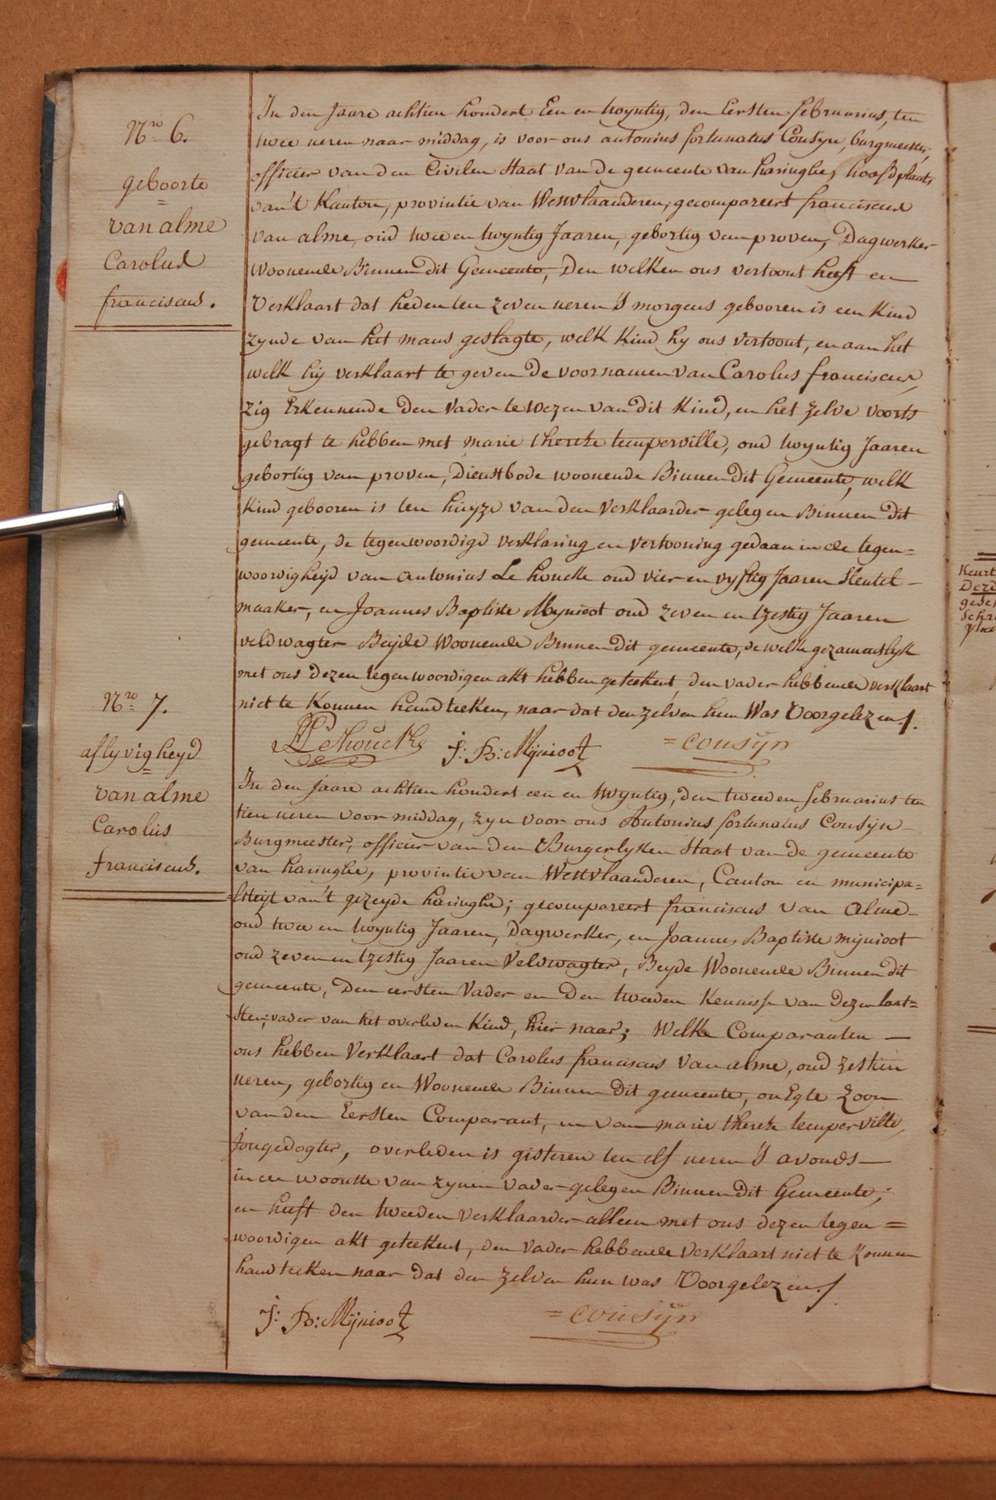 Nro 6.
geboorte
van alme
Carolus
franciscus.
In den Jaare achtien hondert Een en twyntig, den Eersten februarius, ten
twee ueren naar middag, is voor ons antonius fortunatus Cousyn, burgmeester,
officier van den Civilen Staat van de gemeente van haringhe, hoofdplaats
van't Kanton, provintie van Westvlaanderen, gecompareert franciscus
van alme, oud twee en twyntig Jaaren, gebortig van proven, Dagwerker
Woonende Binnen dit Gemeente, Den welken ons vertoont heeft en
Verklaart dat heden ten zeven ueren 's morgens gebooren is een Kind
zynde van het mans geslagte, welk Kind hy ons vertoont, en aan het
welk hij verklaart te geven De voornamen van Carolus franciscus,
zig Erkennende Den Vader te wezen van dit Kind, en het zelve voorts
gebragt te hebben met marie therese temperville, oud twyntig Jaaren
gebortig van proven, Dienstbode woonende Binnen dit Gemeente, welk
Kind gebooren is ten huyze van den Verklaarder gelegen Binnen Dit
gemeente, de tegenwoordige verklaring en vertooning gedaan in de tegen=
woordigheyd van antonius Le houcke oud vier en vyftig Jaaren Sleutel-
maaker, en Joannes Baptiste Mynioot oud zeven en tzestig Jaaren
veldwagter Beyde Woonende Binnen Dit gemeente, de welke gezamentlyk
met ons Dezen tegenwoordigen akt hebben geteekent, den vader hebbende verklaart
niet te Konnen handteeken, naar dat den zelven hun Was Voorgelezen /.
Lehoucke J: B: Mijnioot =cousyn
Nro 7.
aflyvigheyd
van alme
Carolus
franciscus.
In den Jaare achtien hondert een en twyntig, den tweeden februarius ten
tien ueren voor middag, zyn voor ons Antonius fortunatus Cousyn
Burgmeester, officier van den Burgerlyken Staat van de gemeente
van haringhe, provintie van Westvlaanderen, Canton en municipa=
liteyt van't gezeyde haringhe; gecompareert franciscus van alme
oud twee en twyntig Jaaren, Dagwerker, en Joannes Baptiste mijnioot
oud zeven en tzestig Jaaren Veldwagter, Beyde Woonende Binnen dit
gemeente, Den eersten Vader en Den tweeden Kennisse van dezen laat=
sten, vader van het overleden Kind, hier naar; Welke Comparanten
ons hebben Verklaart dat Carolus franciscus van alme, oud zestien
ueren, gebortig en Woonende Binnen Dit gemeente, on Egte Zoon
van den Eersten Comparant, en van marie therese temperville,
Jongedogter, overleden is gisteren ten elf ueren 's avonds
in de woonste van zynen vader gelegen Binnen Dit Gemeente;
en heeft den tweeden verklaarder alleen met ons dezen tegen=
woordigen akt geteekent, den vader hebbende verklaart niet te Konnen
handteeken naar dat den zelven hun was Voorgelezen /.
J: B: Mijnioot =cousyn